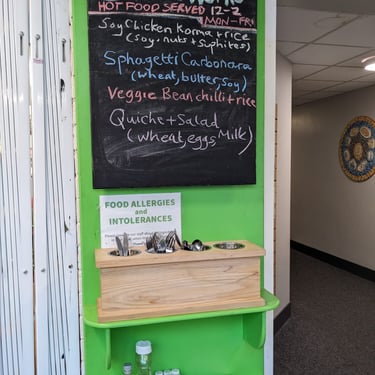 HOT FOOD SERVED 12-2
MON-FRI
Soy Chicken Korma + rice
(Soy, nuts + sulphites)
Sphagetti Carbonara
(wheat, butter, soy)
Veggie Bean chilli + rice
Quiche + Salad
(wheat, eggs, Milk)
FOOD ALLERGIES
and
INTOLERANCES